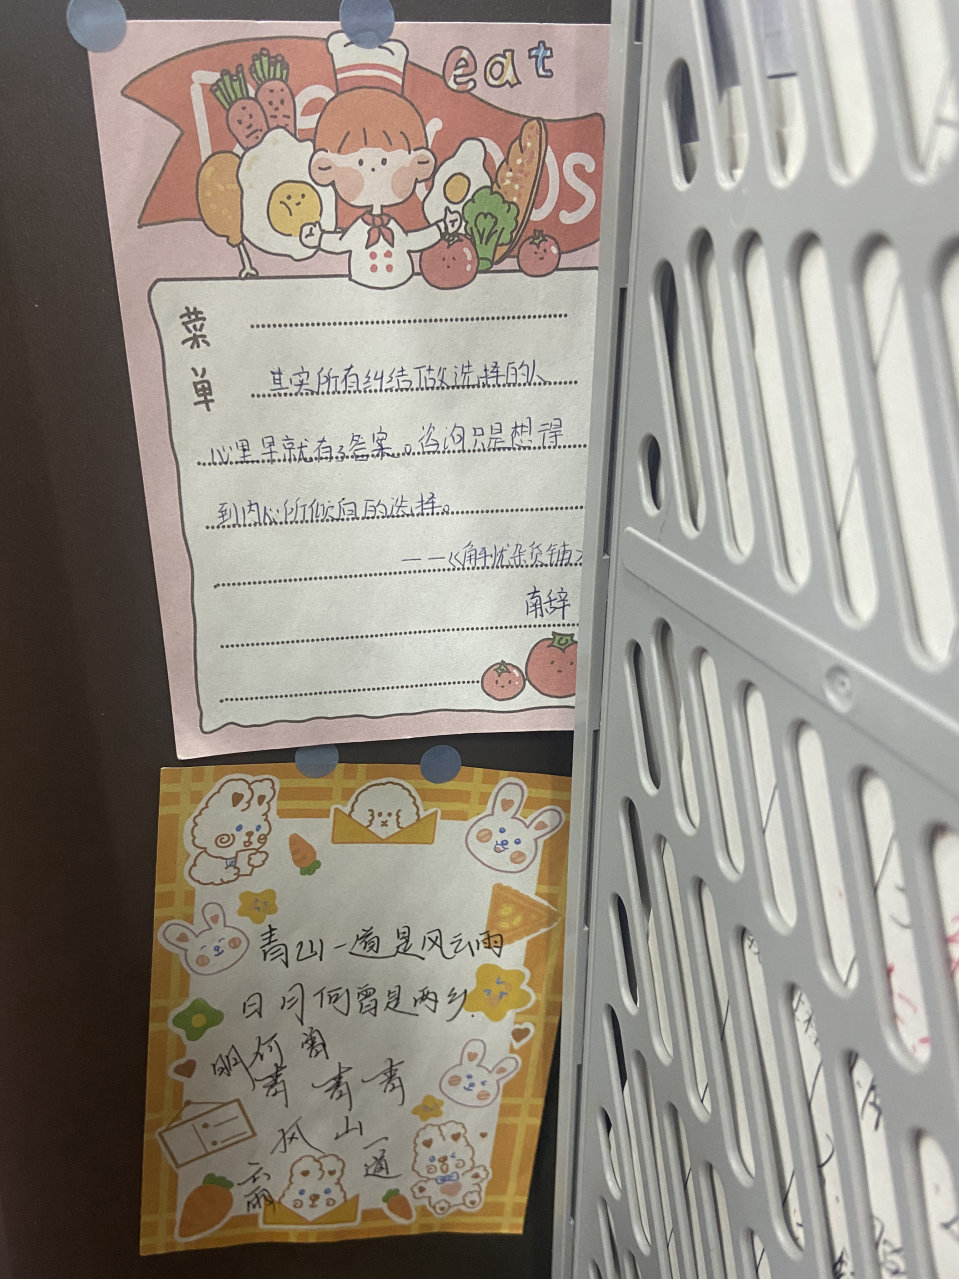 eat
菜单
其实所有纠结做选择的人
心里早就有了答案。咨询只是想得
到内心所倾向的选择。
——《解忧杂货铺》
南辞
青山一道是风云雨
日月何曾是两乡.
明何曾
青青青
风山一道
云雨